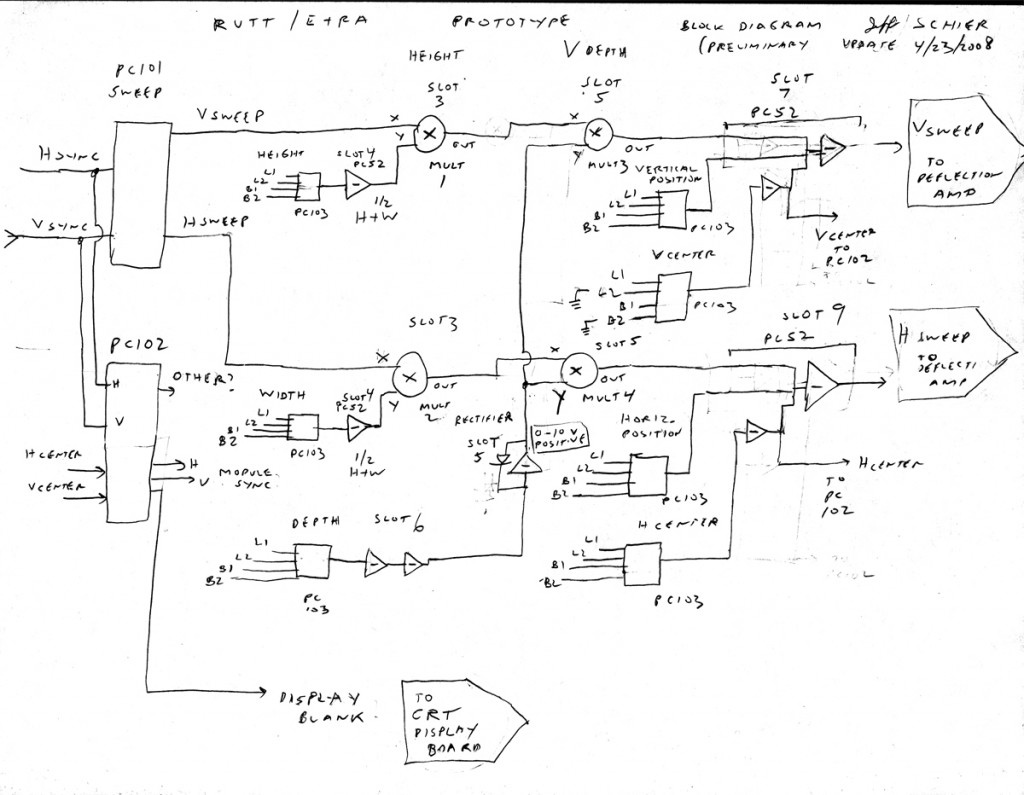 RUTT / ETRA PROTOTYPE BLOCK DIAGRAM SCHIER
(PRELIMINARY UPDATE 4/23/2008
PC101
SWEEP
HEIGHT
SLOT
3
V DEPTH
SLOT
5
SLOT
7
PC52
VSWEEP
X
Y
X
OUT
MULT
1
X
Y
X
OUT
MULT3
VSWEEP
TO
DEFLECTION
AMP
HSYNC
HEIGHT
L1
L2
B1
B2
PC103
SLOT4
PC52
1/2
H+W
VERTICAL
POSITION
L1
L2
B1
B2
PC103
VSYNC
HSWEEP
VCENTER
TO
PC102
VCENTER
L1
L2
B1
B2
PC103
SLOT3
SLOT5
SLOT 9
PC52
H SWEEP
TO
DEFLECTI
AMP
PC102
H
V
OTHER?
X
Y
X
OUT
MULT
2
X
Y
X
OUT
MULT4
WIDTH
L1
L2
B1
B2
PC103
SLOT4
PC52
1/2
H+W
RECTIFIER
SLOT
5
0-10 V
POSITIVE
HORIZ
POSITION
L1
L2
B1
B2
PC103
HCENTER
VCENTER
H
V
MODULE
SYNC
HCENTER
TO
PC
102
DEPTH SLOT 6
L1
L2
B1
B2
PC
103
H CENTER
L1
L2
B1
B2
PC103
DISPLAY
BLANK
TO
CRT
DISPLAY
BOARD